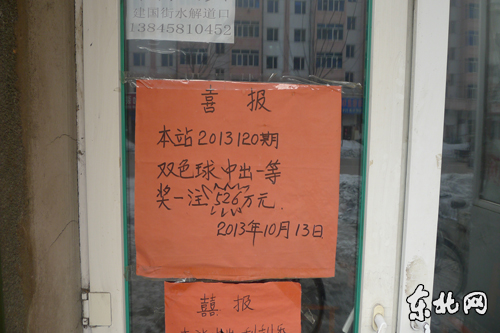 建国街水解道口
13845810452
喜报
本站2013120期
双色球中出一等
奖一注526万元
2013年10月13日
囍报
东北网